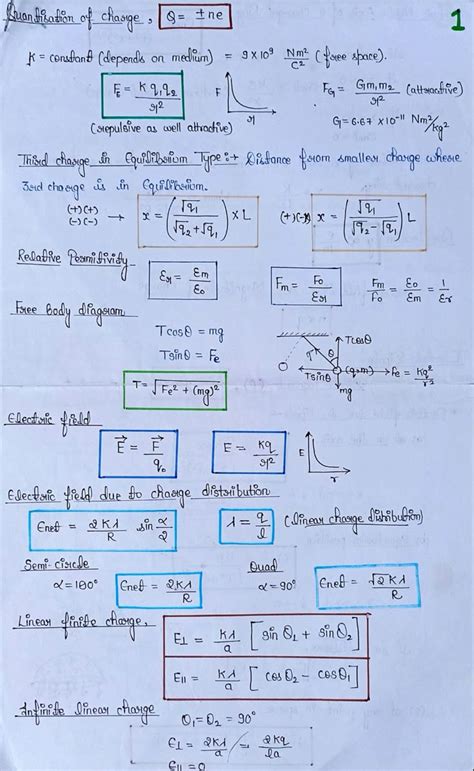 Quantisation of charge, Q = ±ne
1
K = constant (depends on medium) = 9 × 10⁹ Nm²/C² (free space).
F_E = K q₁q₂/r²
F
r
F_G = Gm₁m₂/r² (attractive)
(repulsive as well attractive)
G = 6.67 × 10⁻¹¹ Nm²/kg²
Third charge in Equilibrium Type :→ Distance from smaller charge where
3rd charge is in Equilibrium.
(+)(+)
(-)(-) → x = (√q₁/(√q₂+√q₁)) × L
(+)(-) x = (√q₁/(√q₂-√q₁)) L
Relative Permitivity
Er = Em/E₀
Fm = F₀/Er
Fm/F₀ = E₀/Em = 1/Er
Free body diagram
Tcosθ = mg
Tsinθ = Fe
T = √(Fe² + (mg)²)
T
θ
Tcosθ
Tsinθ
(q,m) → Fe = kq²/r²
mg
Electric field
E⃗ = F⃗/q₀
E = kq/r²
E
r
Electric field due to charge distribution
Enet = 2Kλ/R sin α/2
λ = q/l (linear charge distribution)
Semi-circle
α = 180°
Enet = 2Kλ/R
Quad
α = 90°
Enet = √2Kλ/R
Linear finite charge,
E⊥ = Kλ/a [sinθ₁ + sinθ₂]
E∥ = Kλ/a [cosθ₂ - cosθ₁]
Infinite linear charge
θ₁ = θ₂ = 90°
E⊥ = 2Kλ/a = 2Kq/la
E∥ = 0